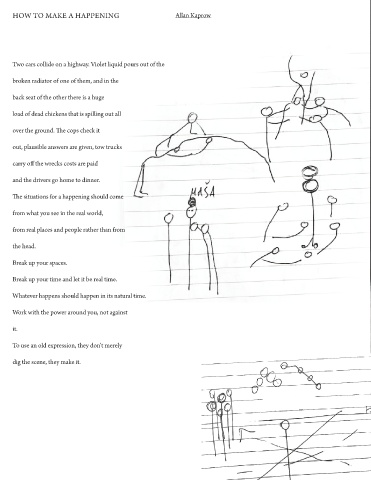 HOW TO MAKE A HAPPENING
Allan Kaprow
Two cars collide on a highway. Violet liquid pours out of the
broken radiator of one of them, and in the
back seat of the other there is a huge
load of dead chickens that is spilling out all
over the ground. The cops check it
out, plausible answers are given, tow trucks
carry off the wrecks costs are paid
and the drivers go home to dinner.
The situations for a happening should come
from what you see in the real world,
from real places and people rather than from
the head.
Break up your spaces.
Break up your time and let it be real time.
Whatever happens should happen in its natural time.
Work with the power around you, not against
it.
To use an old expression, they don't merely
dig the scene, they make it.
MAŠA